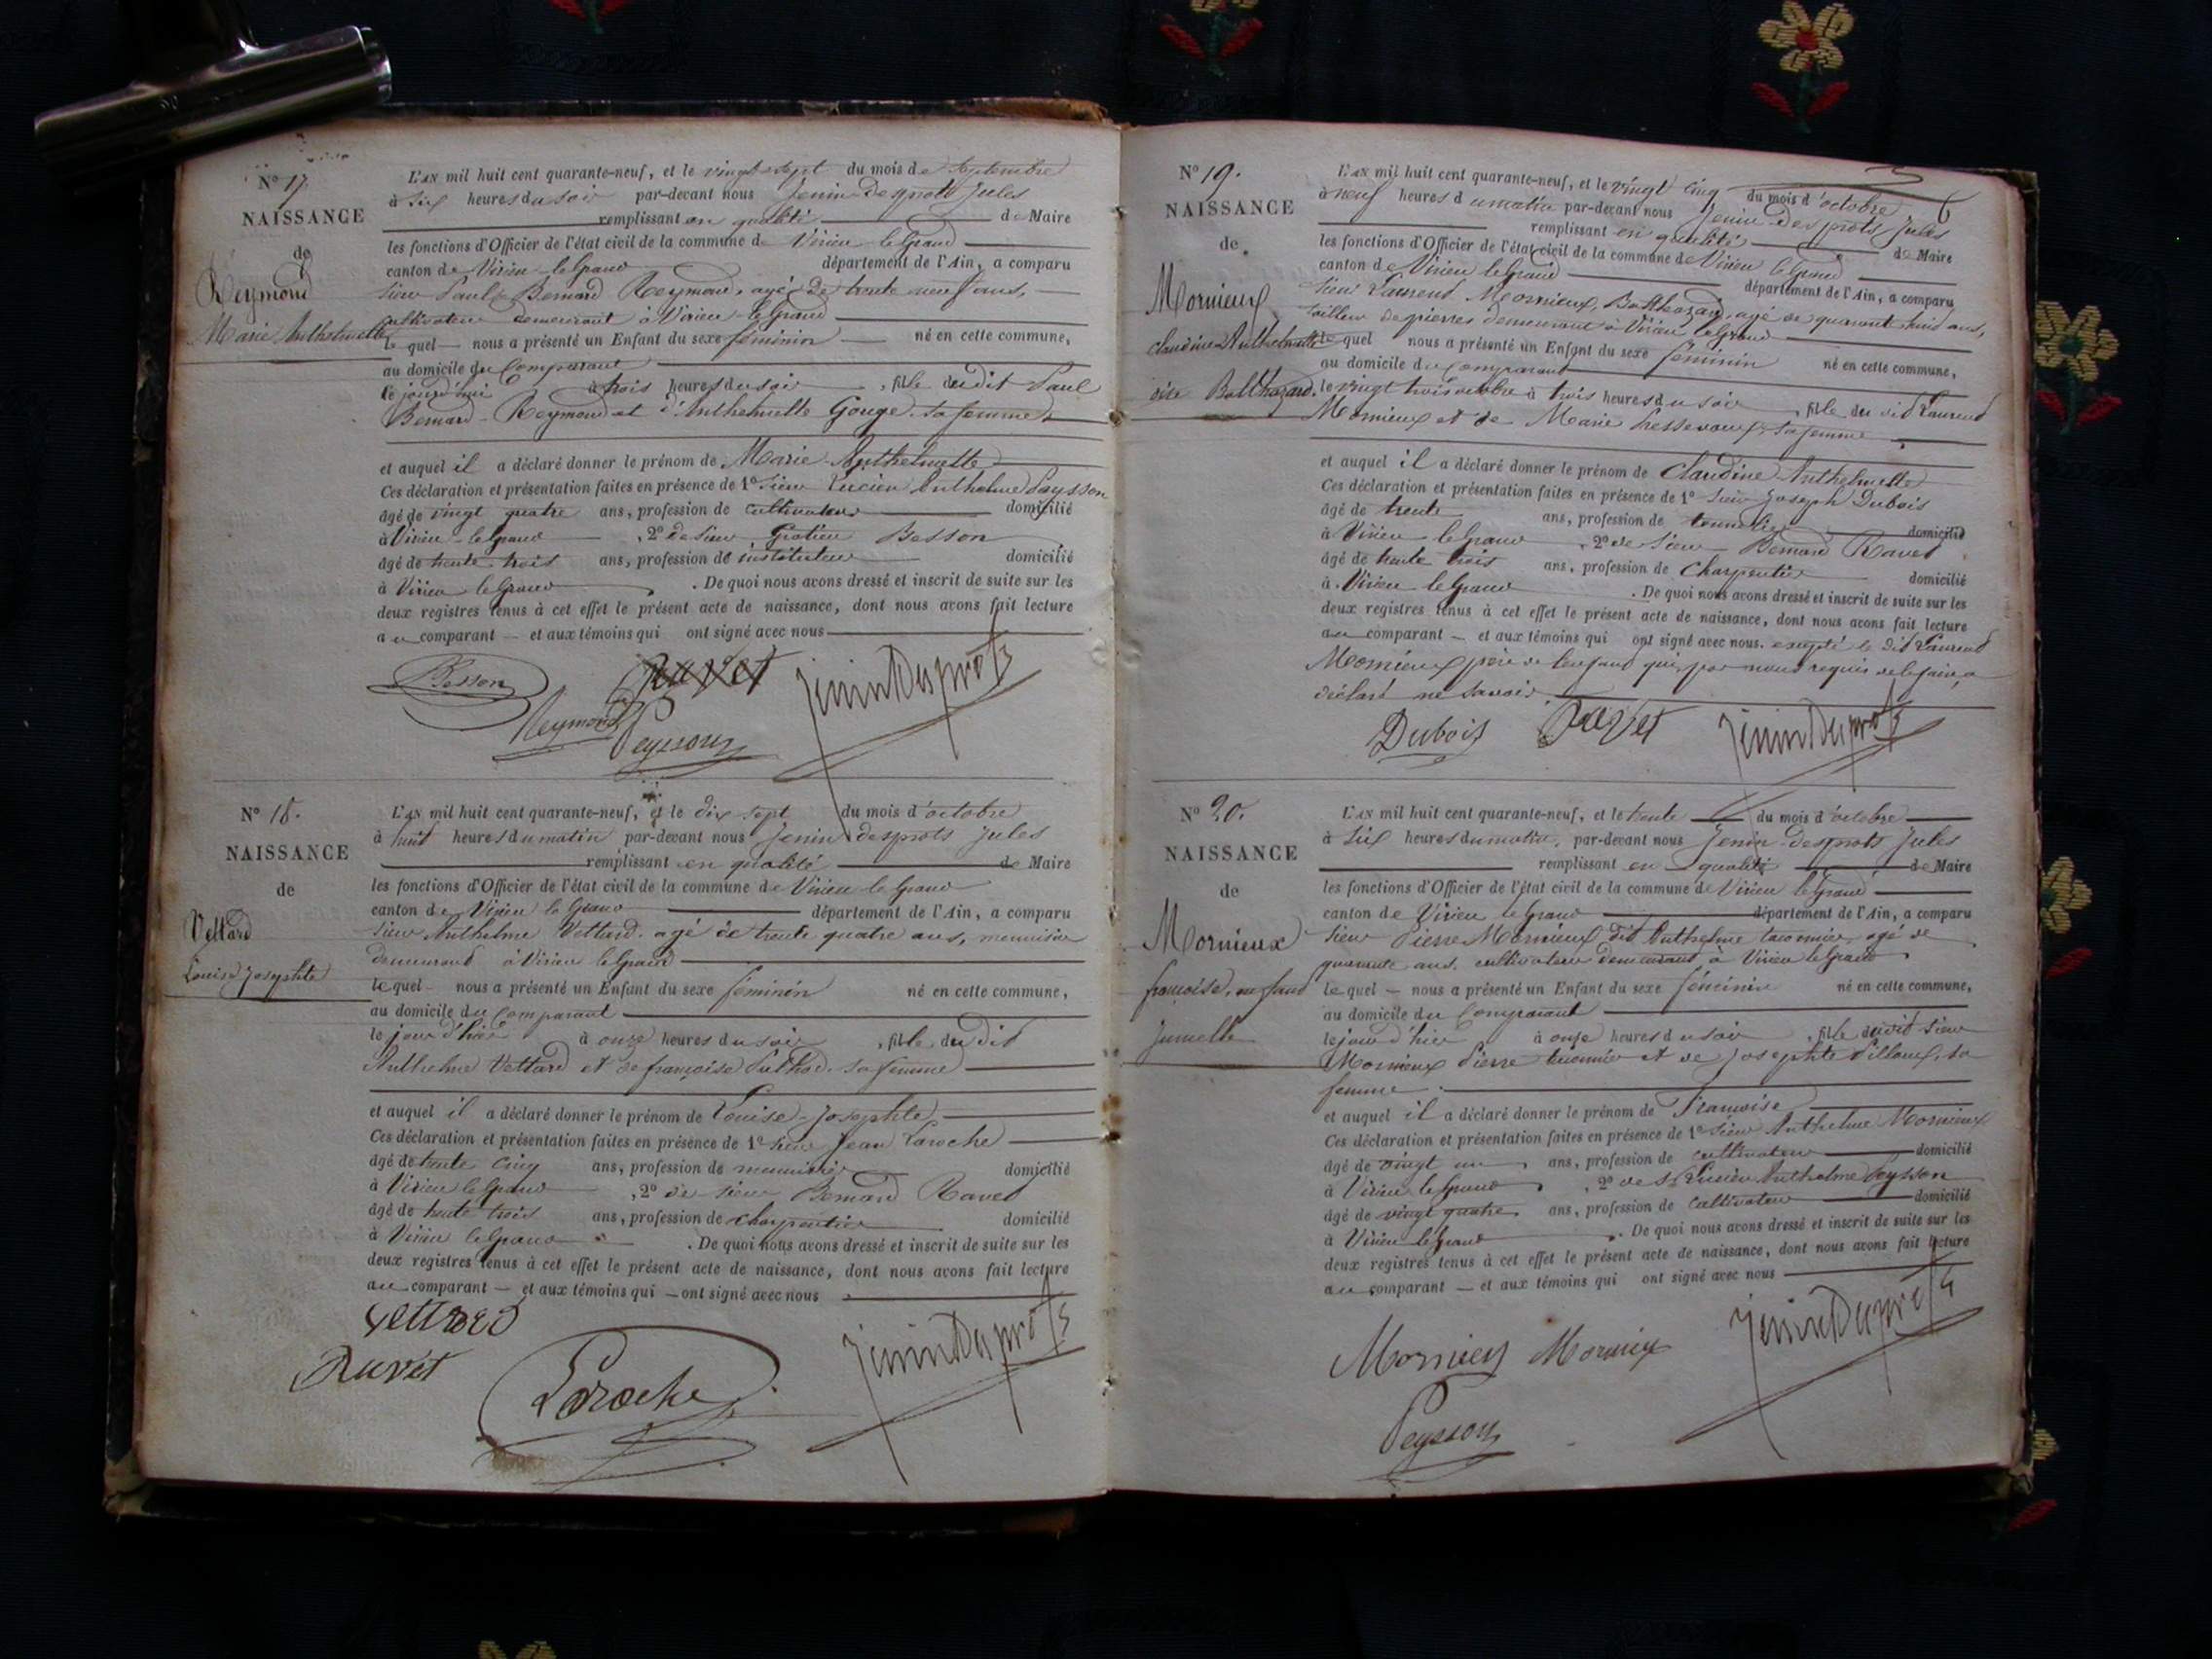 N° 17.
NAISSANCE
de
Reymond
Marie Anthelmette
L'AN mil huit cent quarante-neuf, et le vingt sept du mois de Septembre
à Six heures du soir par-devant nous Jenin desprots Jules
remplissant en qualité de Maire
les fonctions d'Officier de l'état civil de la commune de Virieu le Grand
canton de Virieu le Grand département de l'Ain, a comparu
Sieur Paul Bernard Reymond, agé de trente neuf ans,
cultivateur demeurant à Virieu le Grand
le quel nous a présenté un Enfant du sexe féminin né en cette commune,
au domicile du Comparant
le jourd'hui à trois heures du soir, fille du dit Paul
Bernard Reymond et d'Anthelmette Gouge sa femme
et auquel il a déclaré donner le prénom de Marie Anthelmette
Ces déclaration et présentation faites en présence de 1° Sieur Lucien Anthelme Peysson
âgé de vingt quatre ans, profession de cultivateur domicilié
à Virieu le Grand, 2° de Sieur Gratien Besson
âgé de trente trois ans, profession de instituteur domicilié
à Virieu le Grand. De quoi nous avons dressé et inscrit de suite sur les
deux registres tenus à cet effet le présent acte de naissance, dont nous avons fait lecture
au comparant et aux témoins qui ont signé avec nous
Besson Ravet JeninDesprots
Reymond Peysson
N° 18.
NAISSANCE
de
Vettard
Louise Josephte
L'AN mil huit cent quarante-neuf, et le dix sept du mois d'octobre
à huit heures du matin par-devant nous Jenin desprots Jules
remplissant en qualité de Maire
les fonctions d'Officier de l'état civil de la commune de Virieu le Grand
canton de Virieu le Grand département de l'Ain, a comparu
Sieur Anthelme Vettard agé de trente quatre ans, menuisier
demeurant à Virieu le Grand
le quel nous a présenté un Enfant du sexe féminin né en cette commune,
au domicile du Comparant
le jour d'hier à onze heures du soir, fille du dit
Anthelme Vettard et de françoise sa femme
et auquel il a déclaré donner le prénom de Louise Josephte
Ces déclaration et présentation faites en présence de 1° Sieur Jean Laroche
âgé de trente cinq ans, profession de menuisier domicilié
à Virieu le Grand, 2° de Sieur Bernard Ravet
âgé de trente trois ans, profession de charpentier domicilié
à Virieu le Grand. De quoi nous avons dressé et inscrit de suite sur les
deux registres tenus à cet effet le présent acte de naissance, dont nous avons fait lecture
au comparant et aux témoins qui ont signé avec nous
Vettard
Ravet Laroche JeninDesprots
N° 19.
NAISSANCE
de
Mornieux
claudine Anthelmette
dite Balthazard.
L'AN mil huit cent quarante-neuf, et le vingt cinq du mois d'octobre
à neuf heures du matin par-devant nous Jenin desprots Jules
remplissant en qualité de Maire
les fonctions d'Officier de l'état civil de la commune de Virieu le Grand
canton de Virieu le Grand département de l'Ain, a comparu
Sieur Laurent Mornieux, Balthazard, agé de quarante huit ans,
tailleur de pierres demeurant à Virieu le Grand
le quel nous a présenté un Enfant du sexe féminin né en cette commune,
au domicile du comparant
le vingt trois octobre à trois heures du soir, fille du dit Laurent
Mornieux et de Marie sa femme
et auquel il a déclaré donner le prénom de Claudine Anthelmette
Ces déclaration et présentation faites en présence de 1° Sieur Joseph Dubois
âgé de trente ans, profession de tonnelier domicilié
à Virieu le Grand, 2° de Sieur Bernard Ravet
âgé de trente trois ans, profession de Charpentier domicilié
à Virieu le Grand. De quoi nous avons dressé et inscrit de suite sur les
deux registres tenus à cet effet le présent acte de naissance, dont nous avons fait lecture
au comparant et aux témoins qui ont signé avec nous. excepté le dit Laurent
Mornieux père de l'enfant qui, par nous requis de le faire, a
déclaré ne savoir
Dubois Ravet JeninDesprots
N° 20.
NAISSANCE
de
Mornieux
françoise, enfant
jumelle
L'AN mil huit cent quarante-neuf, et le trente du mois d'octobre
à Six heures du matin, par-devant nous Jenin desprots Jules
remplissant en qualité de Maire
les fonctions d'Officier de l'état civil de la commune de Virieu le Grand
canton de Virieu le Grand département de l'Ain, a comparu
Sieur Pierre Mornieux dit Anthelme agé de
quarante ans, cultivateur demeurant à Virieu le Grand
le quel nous a présenté un Enfant du sexe féminin né en cette commune,
au domicile du Comparant
le jour d'hier à onze heures du soir, fille du dit Sieur
Mornieux Pierre et de Josephte sa
femme
et auquel il a déclaré donner le prénom de françoise
Ces déclaration et présentation faites en présence de 1° Sieur Anthelme Mornieux
âgé de vingt un ans, profession de cultivateur domicilié
à Virieu le Grand, 2° de Sr Lucien Anthelme Peysson
âgé de vingt quatre ans, profession de cultivateur domicilié
à Virieu le Grand. De quoi nous avons dressé et inscrit de suite sur les
deux registres tenus à cet effet le présent acte de naissance, dont nous avons fait lecture
au comparant et aux témoins qui ont signé avec nous
Mornieux Mornieux JeninDesprots
Peysson